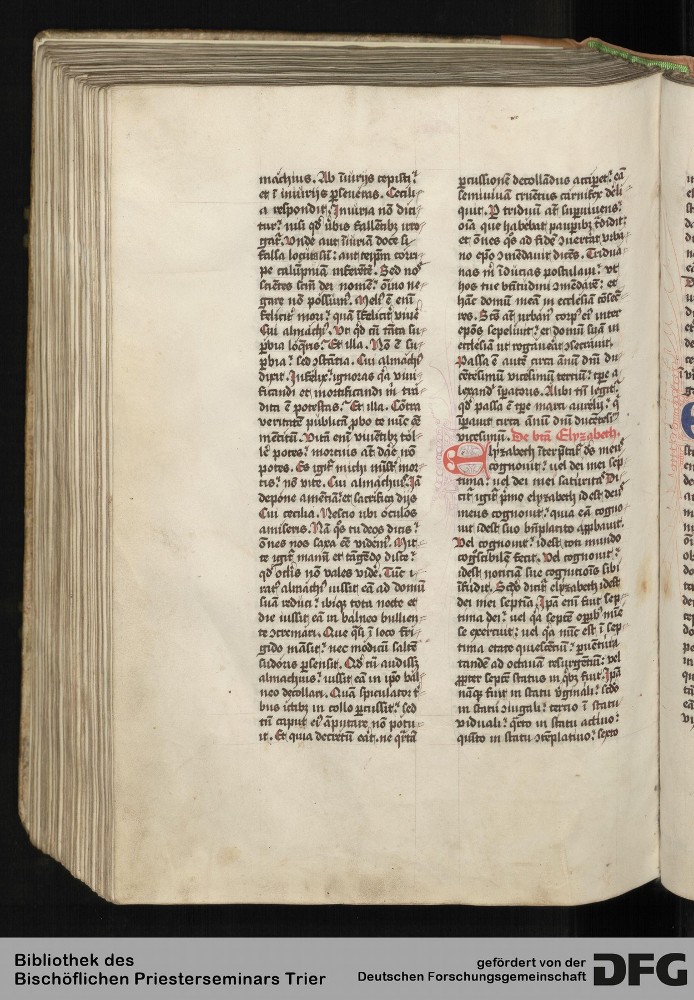 machius. Ab iniurijs cepisti?
et ī iniurijs p̄seueras. Cecili⸗
a respondit. Iniuria nō dici⸗
tur? nisi qd̓ ūbis fallentibꝫ irro⸗
gat̄. Vnde aut iniuriam doce si
falsa locuta sū? aut teip̄m corri⸗
pe calūpniam inferētē. Sed nos
sciētes scm̄ dei nomē? oīno ne⸗
gare nō possum̓. Meli̓ ē enī
feliciṫ mori? quā īfeliciṫ viuē
Cui almachi̓. Vt qd̓ cū tāta su⸗
p̄bia loq̄ris? Et illa. Nō ē su⸗
p̄bia? sed ꝯstātia. Cui almachi̓
dixit. Infelix? ignoras q̓a viui⸗
ficandi et mortificandi m̄ tra⸗
dita ē potestas? Et illa. Cōtra
veritatē publicā p̄bo te nūc eē
mētitū. Vitā enī viuētibꝫ tol⸗
lē potes? mortuis aūt dare nō
potes. Es igiṫ mīst̄ mor⸗
tis? nō vite. Cui almachius. Iā
depone amētiā? et sacrifica dijs
Cui cecilia. Nescio ubi oculos
amiseris. Nā q̓s tu deos dicis?
oēs nos saxa eē videm̓. Mit⸗
te igiṫ manū et tāgēdo disce?
qd̓ oclis nō vales vidē. Tūc i⸗
rat̓ almachi̓ iussit eā ad domū
suā reduci? ibiqꝫ tota nocte et
die iussit eā in balneo bullien⸗
te ꝯcremari. Que q̓si ī loco fri⸗
gido māsit? nec modicū saltē
sudoris p̄sensit. Qd̓ cū audissꝫ
almachius? iussit eā in ip̄o bal⸗
neo decollari. Quā spiculator t̓⸗
bus ictibꝫ in collo p̄cussit? sed
tn̄ caput ei̓ āputare nō potu⸗
it. Et quia decretū eāt. ne q̓rtā
p̄cussionē decollādus accip̄et? eā
semiuiuā cruētus carnifex deli⸗
quit. P̱ triduū aūt sup̄uiuens?
oīa que habebat paup̄ibꝫ t̓didit?
et oēs q̓s ad fidē ꝯuert̄at vrba⸗
no ep̄o ꝯmēdauit dicēs. Tridua⸗
nas m̄ īducias postulaui? vt
hos tue bt̄itudini ꝯmēdarē? et
hāc domū meā in ecclesiā ꝯsecra⸗
res. Scūs aūt urban̓ corp̓ ei̓ inter
ep̄os sepeliuit? et domū suā in
ecclesiā ut rogauerat ꝯsecrauit.
Passa ē autē circa annū dn̄i du⸗
cētesimū vicesimū tertiū? tp̄e a⸗
lexand̓ īp̄atoris. Alibi tn̄ legit̄?
qd̓ passa ē tp̄e marci aurelij? q̓
īp̄auit circa annū dn̄i ducētesi⸗
vicesimū. De btā̄ Elyzabeth.
Elyzabeth īterp̄tat̄ ds̄ meus
cognouit? uel dei mei sep⸗
tima? uel dei mei saturitas. Di⸗
cit̄ igiṫ p̓mo elyzabeth id est deus
meus cognouit? quia eā cogno⸗
uit id est suo bn̄placito app̄bauit.
Vel cognouit? id est
cogscibilē fecit. Vel cognouit?
id est noticiā sue cognitionis sibi
īfudit. Scd̓o dicit̄ elyzabeth id est
dei mei septīa. Ip̄a enī fuit sep⸗
tima dei? vel q̓a septē op̄ibꝫ mīe
se exercuit? vel q̓a mō est ī sep⸗
tima etate quiescētiū? p̄uētura
tandē ad octauā resurgētiū? vel
ꝓpter septē status in q̓bꝫ fuit. Ip̄a
nāqꝫ fuit in statu v̓ginali? scd̓o
in statu ꝯiugali? tercio ī statu
viduali? q̓rto in statu actiuo?
quīto in statu ꝯtēplatiuo? sexto
Bibliothek des
Bischöflichen Priesterseminars Trier
gefördert von der
Deutschen Forschungsgemeinschaft
DFG